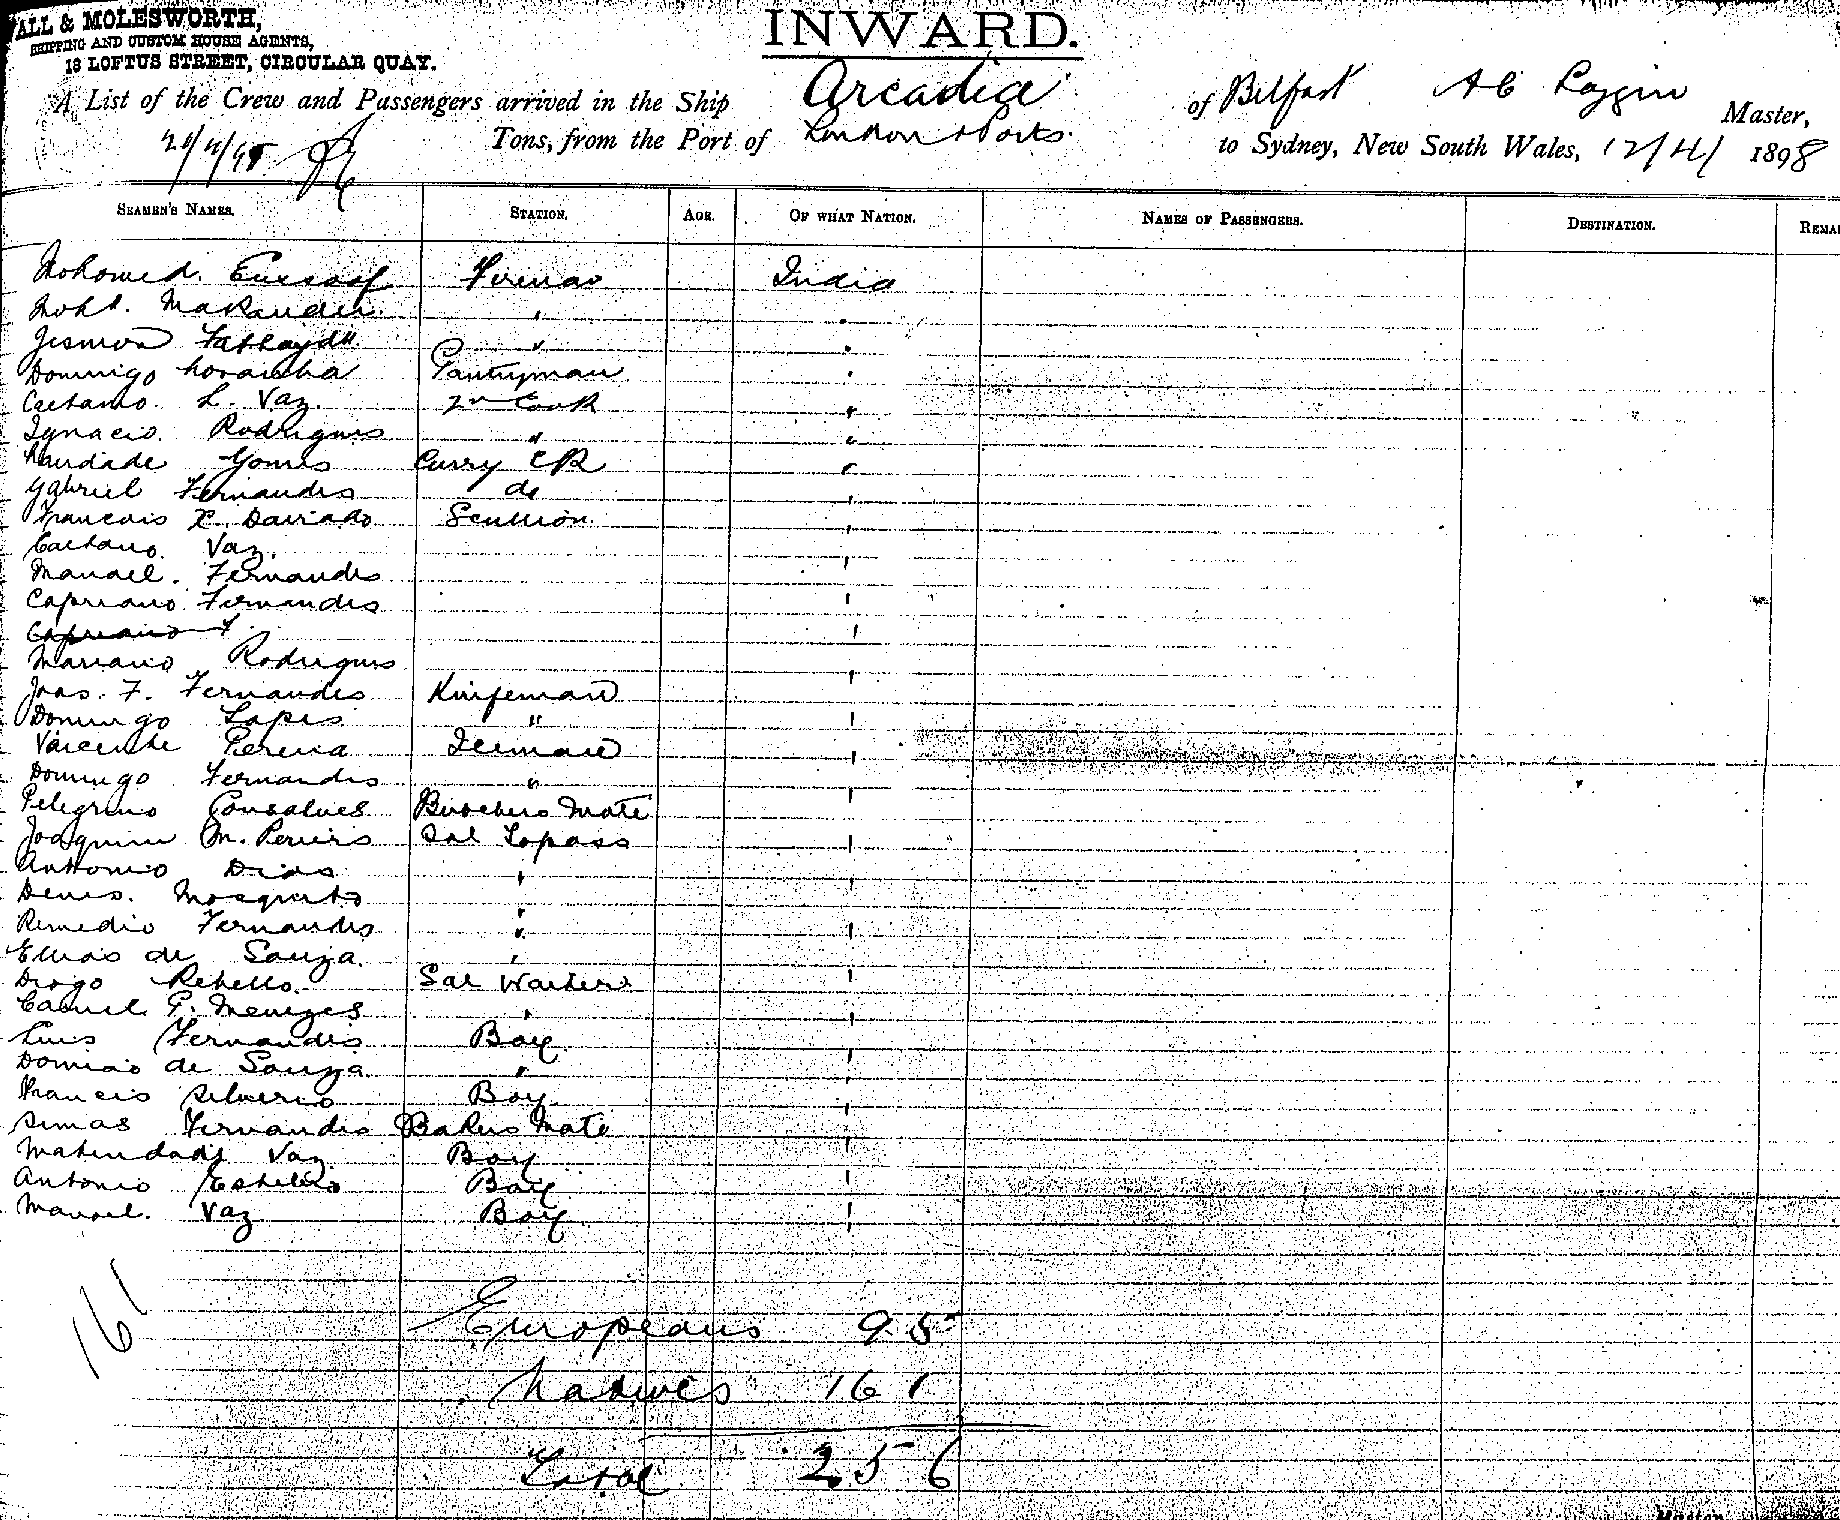 ALL & MOLESWORTH,
SHIPPING AND CUSTOM HOUSE AGENTS,
18 LOFTUS STREET, CIRCULAR QUAY.
INWARD.
A List of the Crew and Passengers arrived in the Ship Arcadia of Belfast A C Loggin Master,
Tons, from the Port of London & Ports. to Sydney, New South Wales, 12/4/ 1898
SEAMEN'S NAMES. STATION. AGE. OF WHAT NATION. NAMES OF PASSENGERS. DESTINATION. REMA
Mohomed. Eussoof Fireman India
Mohd. "
"
Domingo Pantryman "
Caetano. L. Vaz. 2nd Cook "
Ignacio. Rodrigues " "
Gomes Curry CK "
Gabriel Fernandes do "
X. Scullion "
Caetano. Vaz. "
Manoel. Fernandes "
Capriano Fernandes "
Capriano F "
Mariano Rodrigues "
Joas. F. Fernandes Knifeman "
Domingo Lopes " "
Pereira Iceman "
Domingo Fernandes " "
Pelegrino Gonsalves Butchers Mate "
Joaquim M. Pereira Sal Topass "
Antonio Dias " "
Denis. Mosquito "
Remedio Fernandes " "
Elias de Souza. " "
Diogo Rebello. Sal Waiters "
G. Menezes " "
Luis Fernandes Boy "
Domião de Souza " "
Francis Silverio Boy "
Simas Fernandes Bakers Mate "
Vaz Boy "
Antonio Boy "
Manoel. Vaz Boy "
161
Europeans 95
Natives 161
Total 256